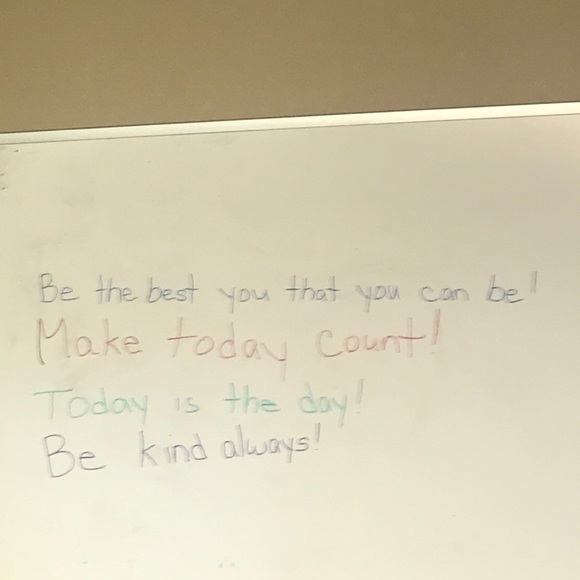 Be the best you that you can be!
Make today count!
Today is the day!
Be kind always!